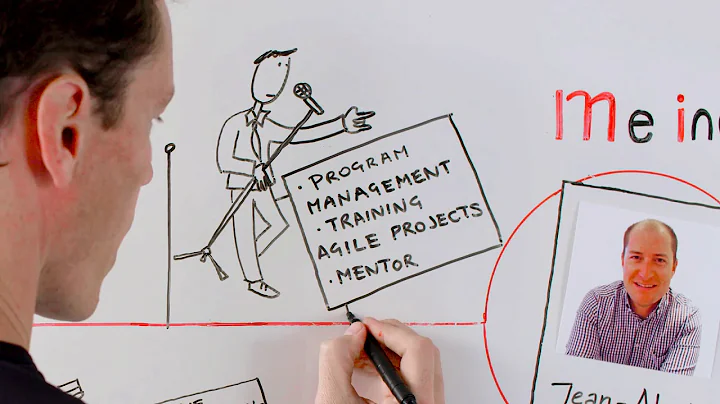 · PROGRAM
MANAGEMENT
· TRAINING
AGILE PROJECTS
· MENTOR
me in
Jean-